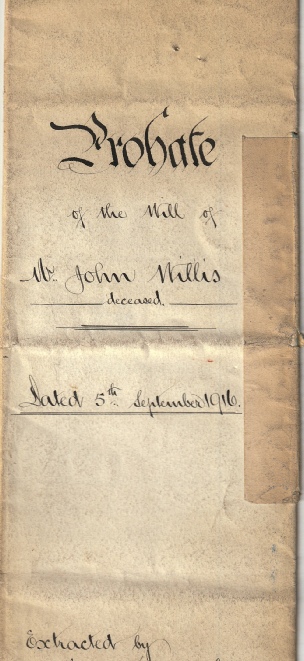 Probate
of the Will of
Mr. John Willis
deceased.
Dated 5th September 1916.
Extracted by